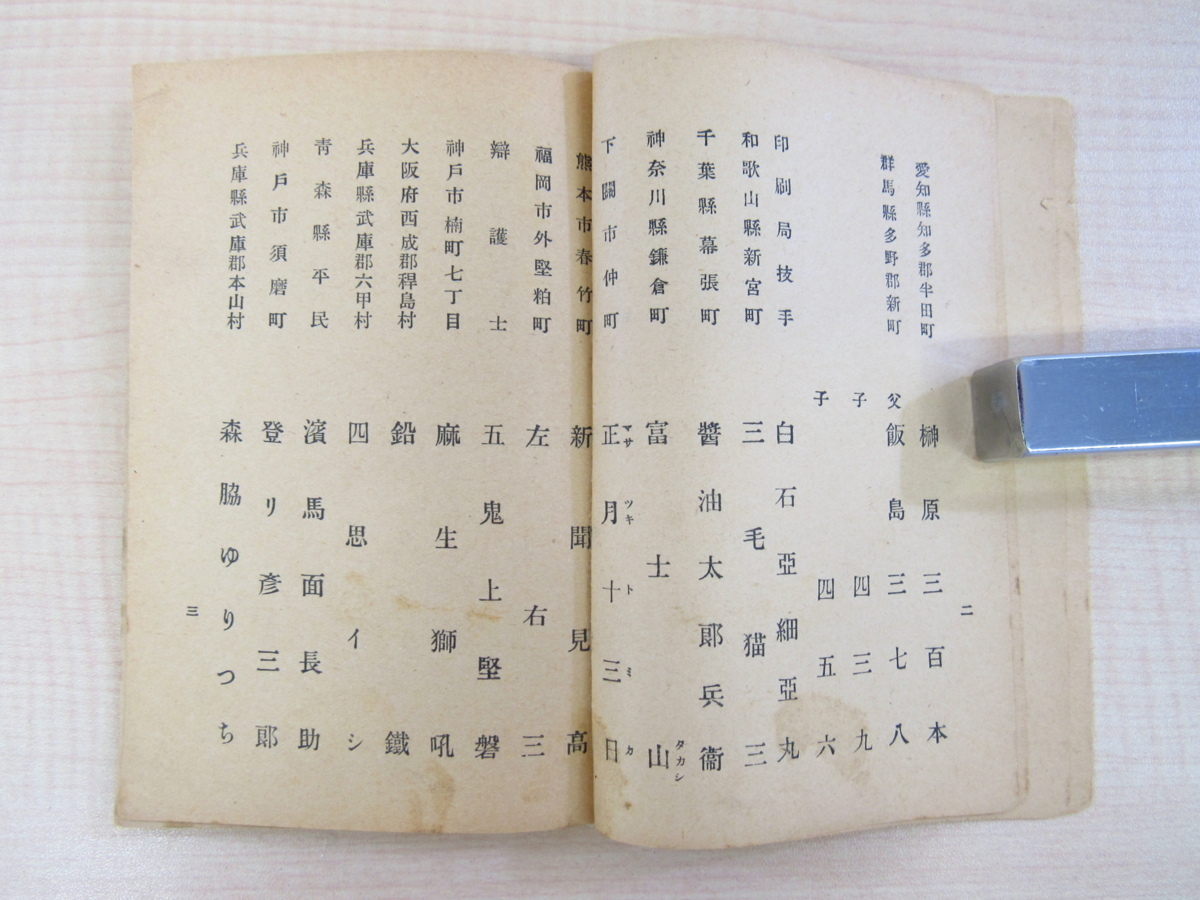 愛知縣知多郡半田町 榊原三百本
群馬縣多野郡新町 父 飯島三七八
子 四三九
子 四五六
印刷局技手 白石亞細亞丸
和歌山縣新宮町 三毛猫三
千葉縣幕張町 醬油太郎兵衞
神奈川縣鎌倉町 富士山 タカシ
下關市仲町 正月十三日 マサツキトミカ
二
熊本市春竹町 新聞見高
福岡市外堅粕町 左右三
辯護士 五鬼上堅磐
神戶市楠町七丁目 麻生獅吼
大阪府西成郡稗島村 鉛鐵
兵庫縣武庫郡六甲村 四思イシ
靑森縣平民 濱馬面長助
神戶市須磨町 登リ彥三郎
兵庫縣武庫郡本山村 森脇ゆりつち
三